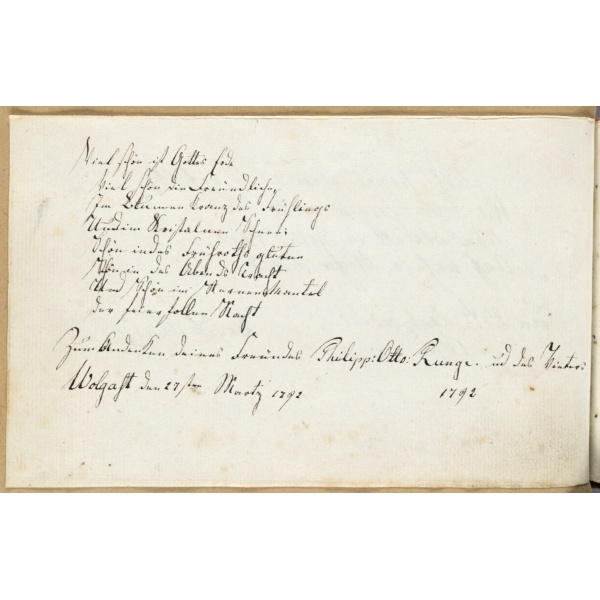 Viel schön ist Gottes Erde
Viel schön die Freündliche
Im Blumen kranz des Frühlings
Und im Kristalnen Schnee
Schön in des Frühroths gluten
Schön in des Abends Pracht
Und Schön im Sternenmantel
der feierfollen Nacht
Zum Andenken deines Freündes Philipp: Otto: Runge. und des
Wolgast den 27sten Martz 1792 1792